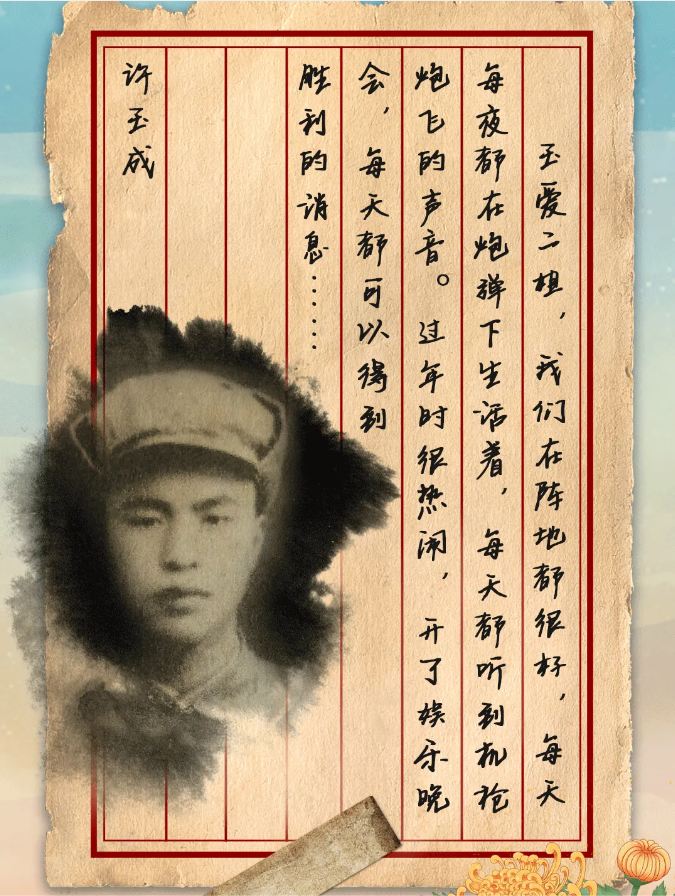 玉爱二姐，我们在阵地都很好，每天
每夜都在炮弹下生活着，每天都听到机枪
炮飞的声音。过年时很热闹，开了娱乐晚
会，每天都可以得到
胜利的消息……
许玉成